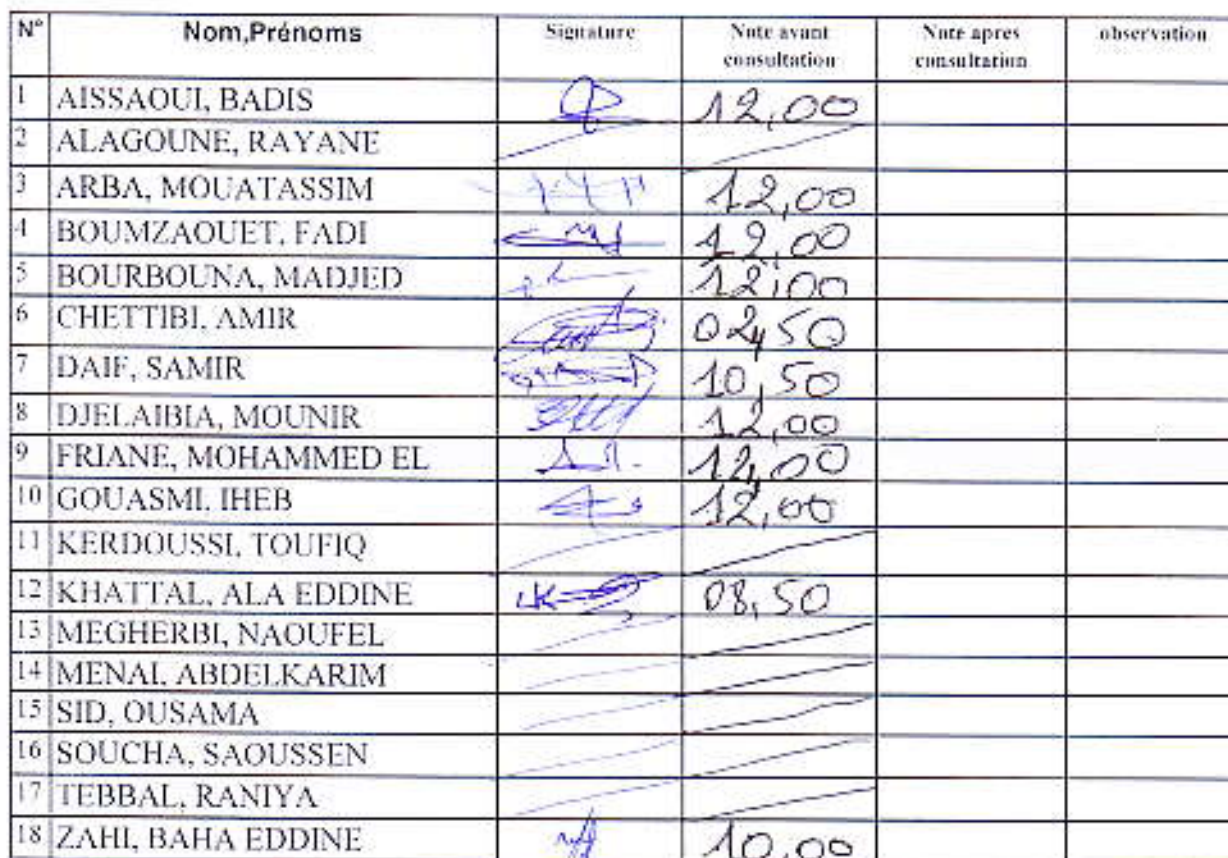 N° Nom,Prénoms Signature Note avant consultation Note apres consultation observation
1 AISSAOUI, BADIS 12,00
2 ALAGOUNE, RAYANE
3 ARBA, MOUATASSIM 12,00
4 BOUMZAOUET, FADI 12,00
5 BOURBOUNA, MADJED 12,00
6 CHETTIBI, AMIR 02,50
7 DAIF, SAMIR 10,50
8 DJELAIBIA, MOUNIR 12,00
9 FRIANE, MOHAMMED EL 12,00
10 GOUASMI, IHEB 12,00
11 KERDOUSSI, TOUFIQ
12 KHATTAL, ALA EDDINE 08,50
13 MEGHERBI, NAOUFEL
14 MENAI, ABDELKARIM
15 SID, OUSAMA
16 SOUCHA, SAOUSSEN
17 TEBBAL, RANIYA
18 ZAHI, BAHA EDDINE 10,00